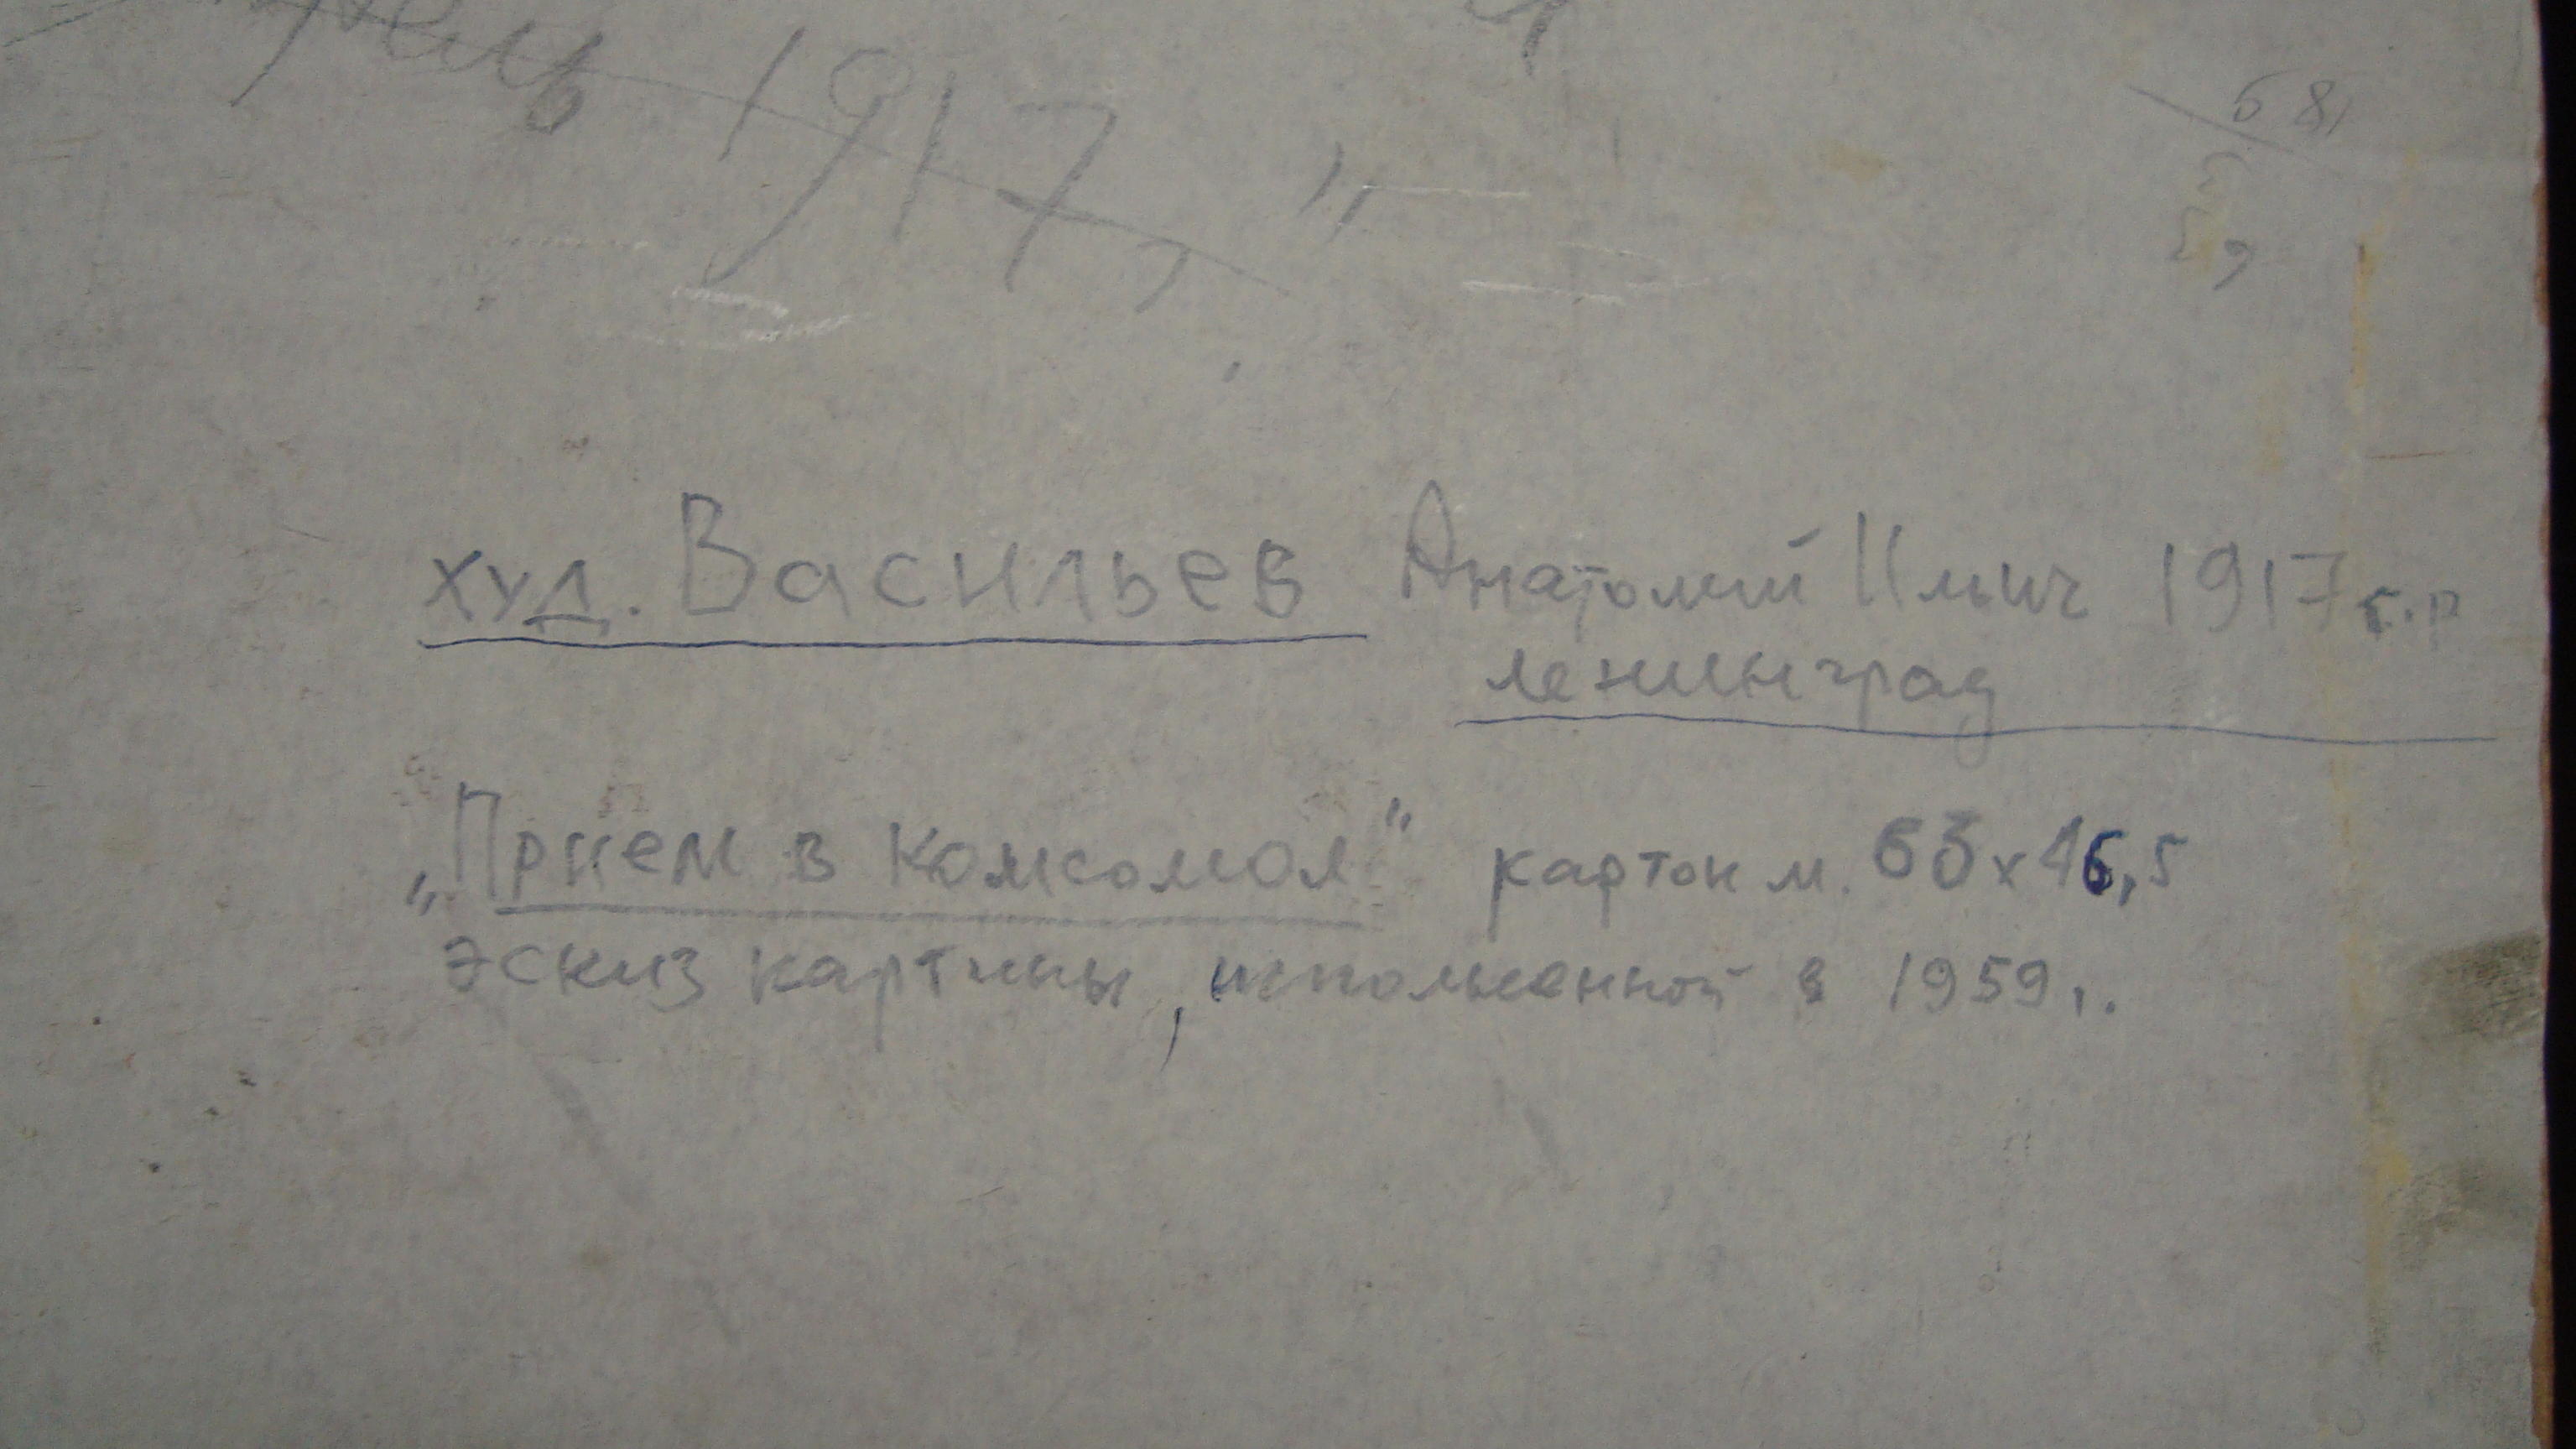 1917 "
68
худ. Васильев Анатолий Ильич 1917 г.р
ленинград
„Прием в комсомол" картон м. 63х46,5
эскиз картины, исполненной в 1959 г.